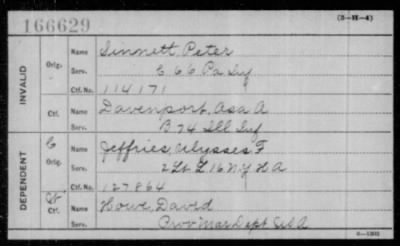 166629
(3-H-4)
INVALID
Orig.
Name Sinnett, Peter
Serv. E 66 Pa Inf
Ctf. No. 114171
Ctf.
Name Davenport, Asa A
Serv. B 74 Ill Inf
DEPENDENT
C
Orig.
Name Jeffries, Ulysses F
Serv. 2 Lt L 16 N.Y. H A
Ctf. No. 127864
Ctf.
Name Howe, David
Serv. Prov Mar Dept U.S.A